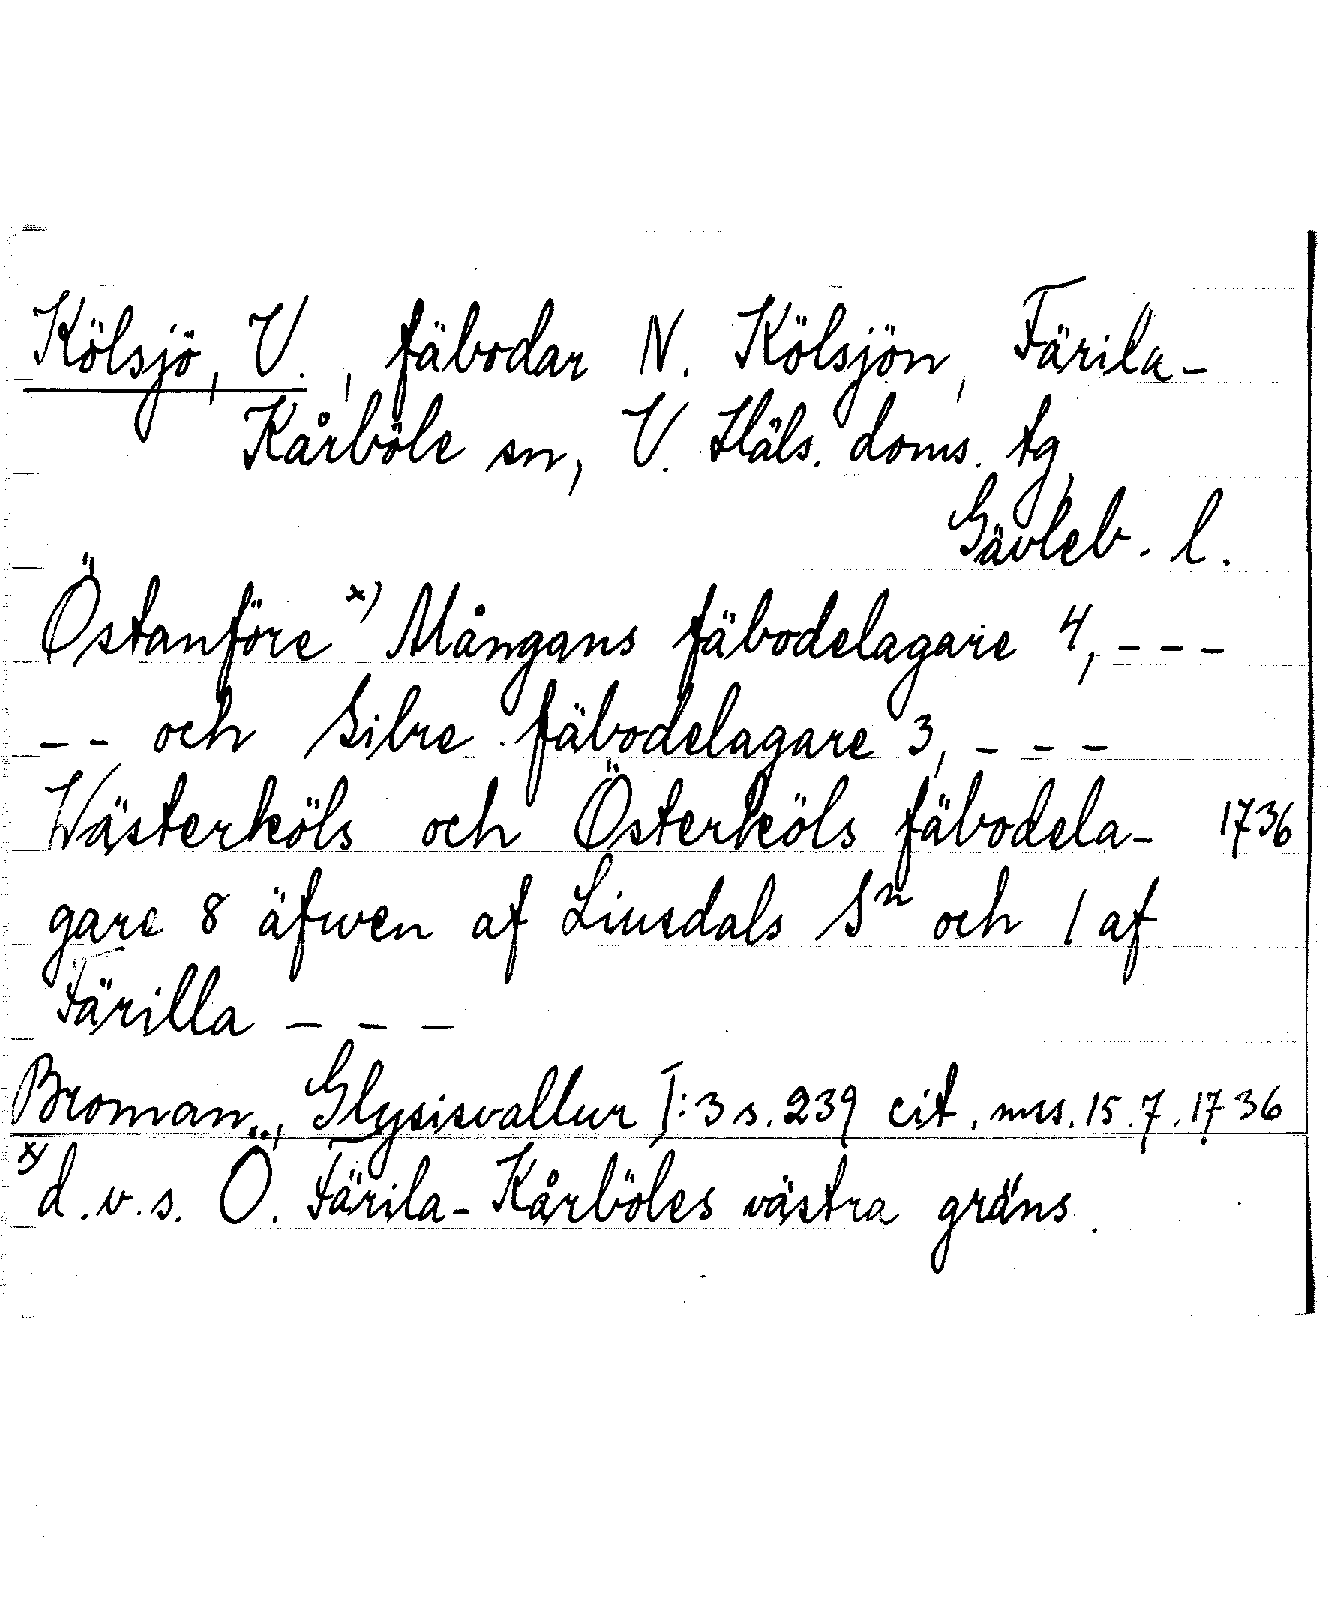 Kölsjö, V., fäbodar N. Kölsjön, Färila-
Kårböle sn, V. Häls. doms. tg,
Gävleb. l.
Östanföre x) Mångans fäbodelagare 4, - - -
- - och Silre fäbodelagare 3, - - -
Wästerköls och Österköls fäbodela- 1736
gare 8 äfwen af Liusdals Sn och 1 af
Färilla - - -
Broman, Glysisvallur I:3 s. 239 cit. mss. 15.7.1736
x) d.v.s. Ö. Färila-Kårböles västra gräns.